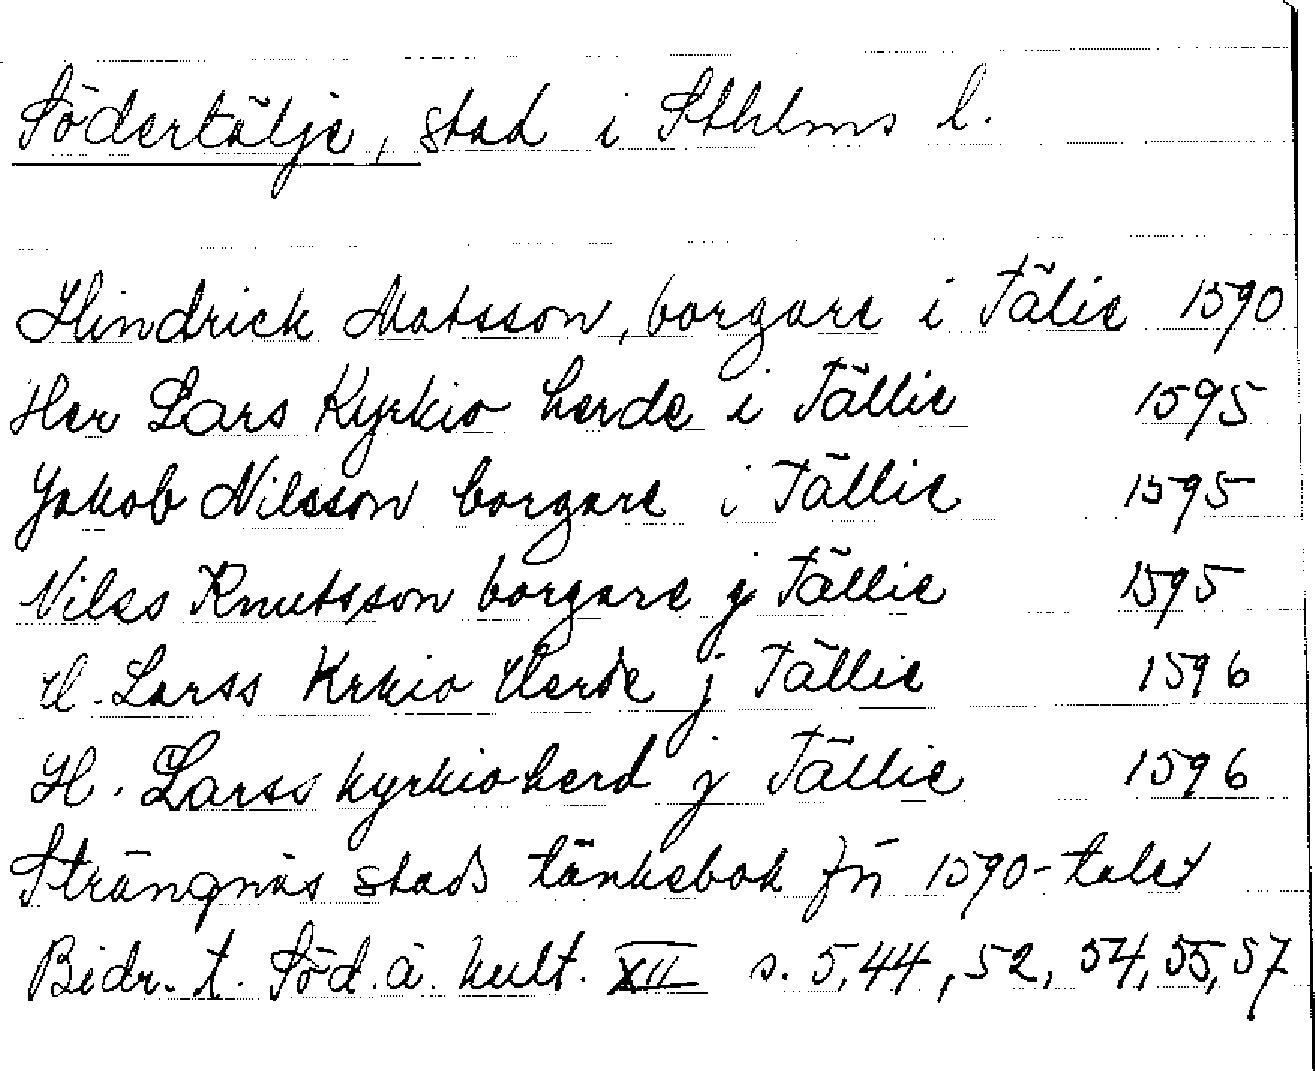 Södertälje, stad i Sthlms l.
Hindrick Matsson, borgare i Tälie 1590
Her Lars Kyrkio herde i Tällie 1595
Jakob Nilsson borgare i Tällie 1595
Nilss Knutsson borgare j Tällie 1595
H. Larss Krkio Herde j Tällie 1596
H. Larss kyrkioherd j Tällie 1596
Strängnäs stads tänkebok fr̄n 1590-talet
Bidr. t. Söd. ä. kult. XII s. 5, 44, 52, 54, 55, 57